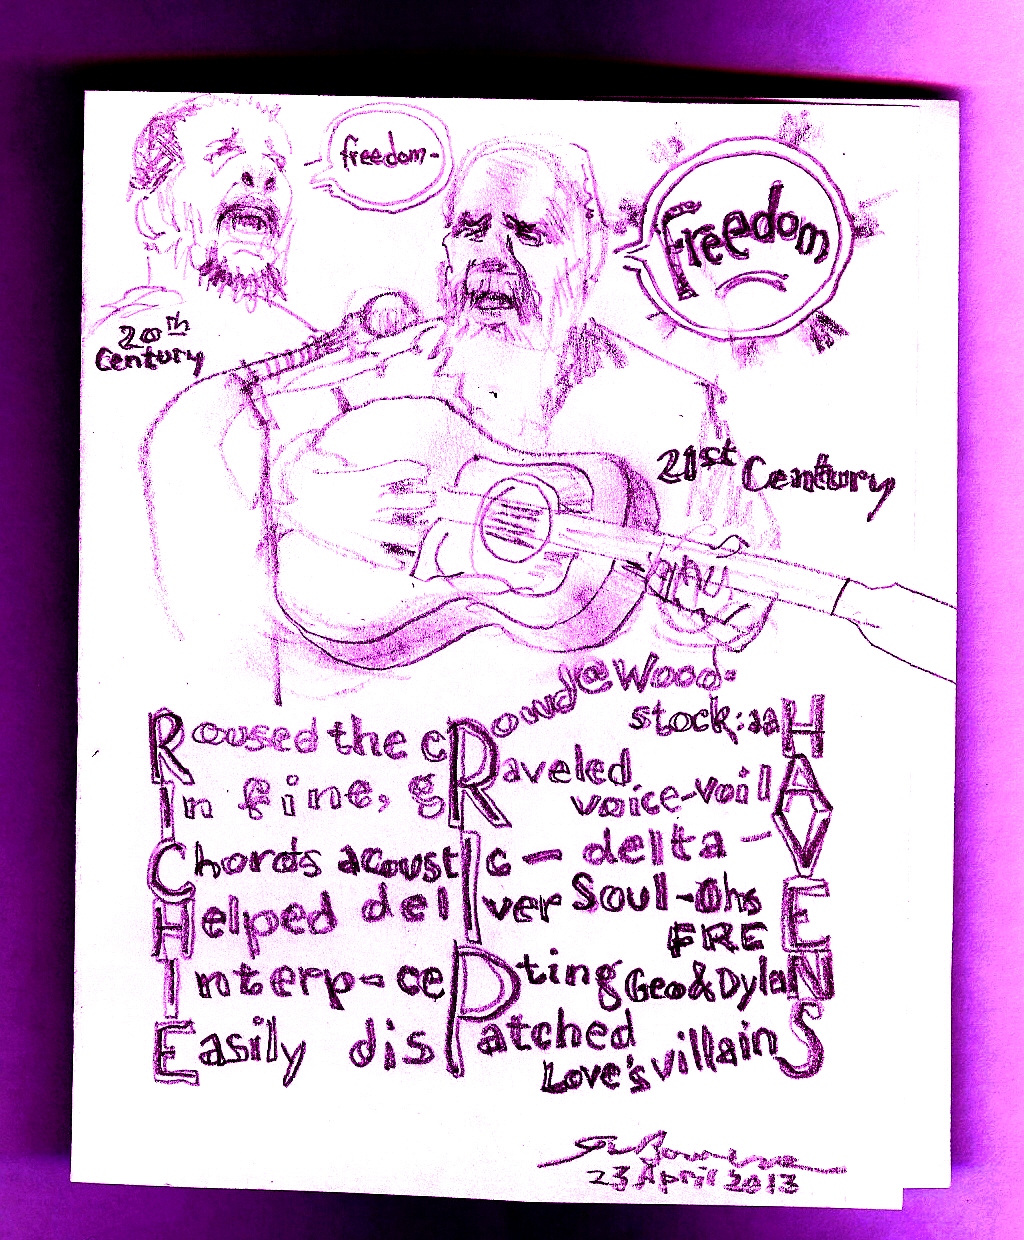 freedom-
Freedom
20th
Century
21st Century
Roused the cRowd@Wood-
stock:aaH
In fine, gRaveled
voice-voilA
Chords acoustIc - delta - V
Helped delIver Soul-Ohs
FREE
Interp-cePting Geo&DylaN
Easily disPatched
Love's villainS
23 April 2013